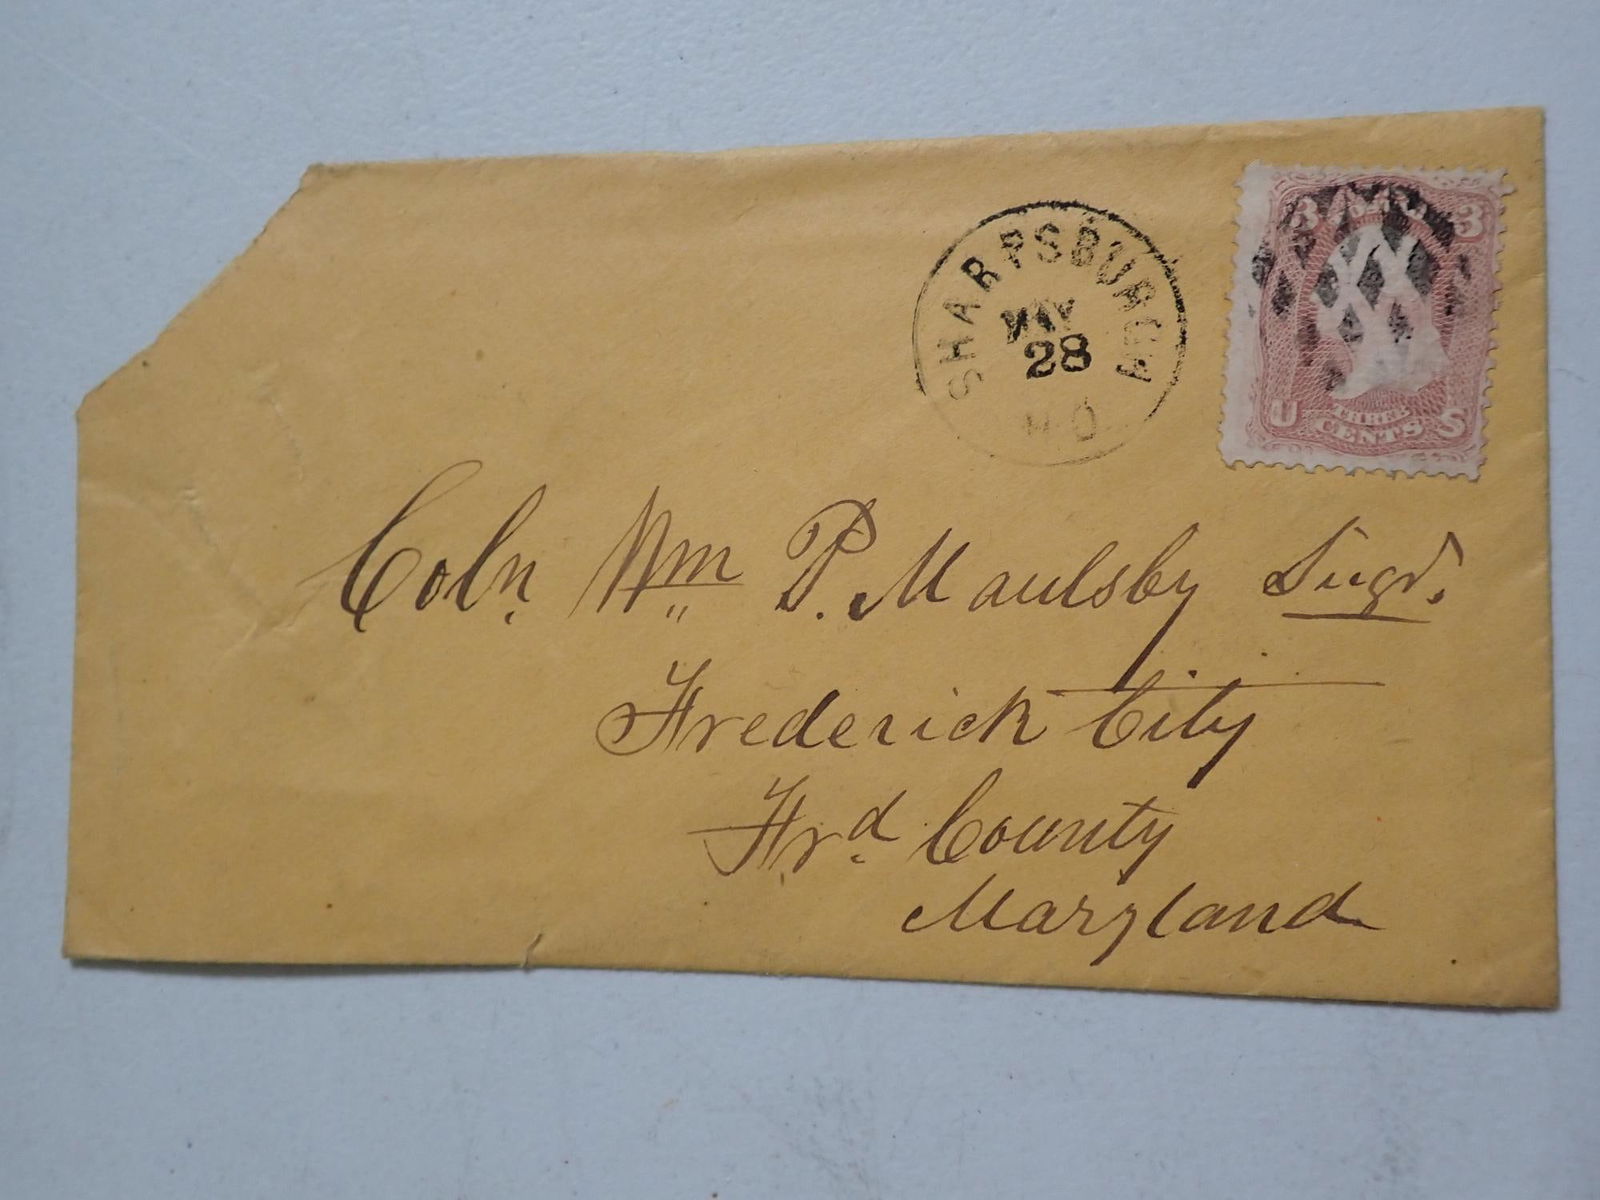 SHARPSBURGH
MAY
28
MD
3 3
U THREE S
CENTS
Coln. Wm P. Maulsby
Frederick City
Frd. County
Maryland